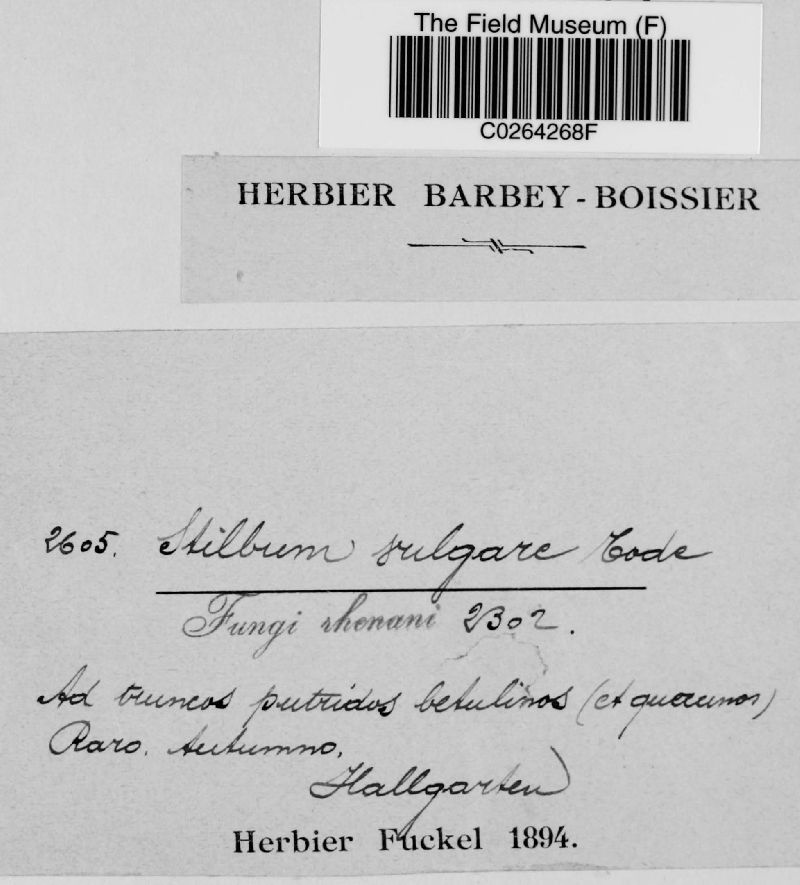 The Field Museum (F)
C0264268F
HERBIER BARBEY-BOISSIER
2605. Stilbum vulgare Tode
Fungi rhenani 2302.
Ad truncos putridos betulinos (et quercinos)
Raro. Autumno.
Hallgarten
Herbier Fuckel 1894.